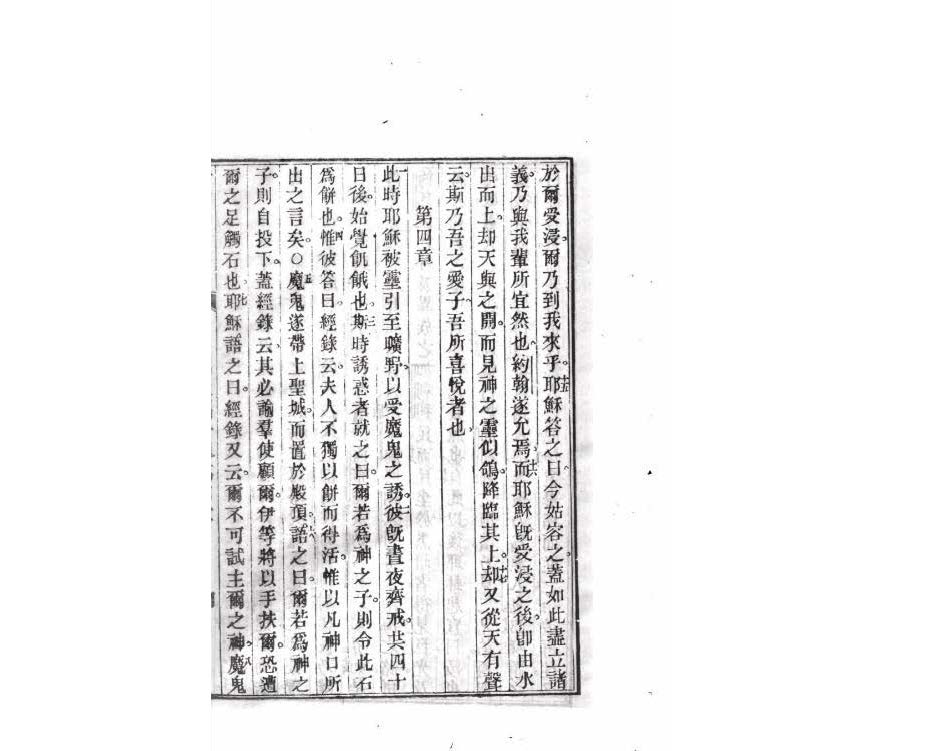 於爾受浸。爾乃到我來乎。十五耶穌答之曰。今姑容之。蓋如此盡立諸
義。乃與我輩所宜然也。約翰遂允焉。十六而耶穌旣受浸之後。卽由水
出而上。却天與之開。而見神之靈似鴿。降臨其上。十七却又從天有聲
云。斯乃吾之愛子。吾所喜悅者也。
第四章
一此時耶穌被靈引至曠野。以受魔鬼之誘。二彼旣晝夜齊戒。共四十
日後。始覺飢餓也。三斯時誘惑者就之曰。爾若爲神之子。則令此石
爲餅也。四惟彼答曰。經錄云。夫人不獨以餅而得活。惟以凡神口所
出之言矣。○五魔鬼遂帶上聖城。而置於殿頂。六語之曰。爾若爲神之
子。則自投下。蓋經錄云。其必諭羣使顧爾。伊等將以手扶爾。恐遭
爾之足觸石也。七耶穌語之曰。經錄又云。爾不可試主爾之神。八魔鬼